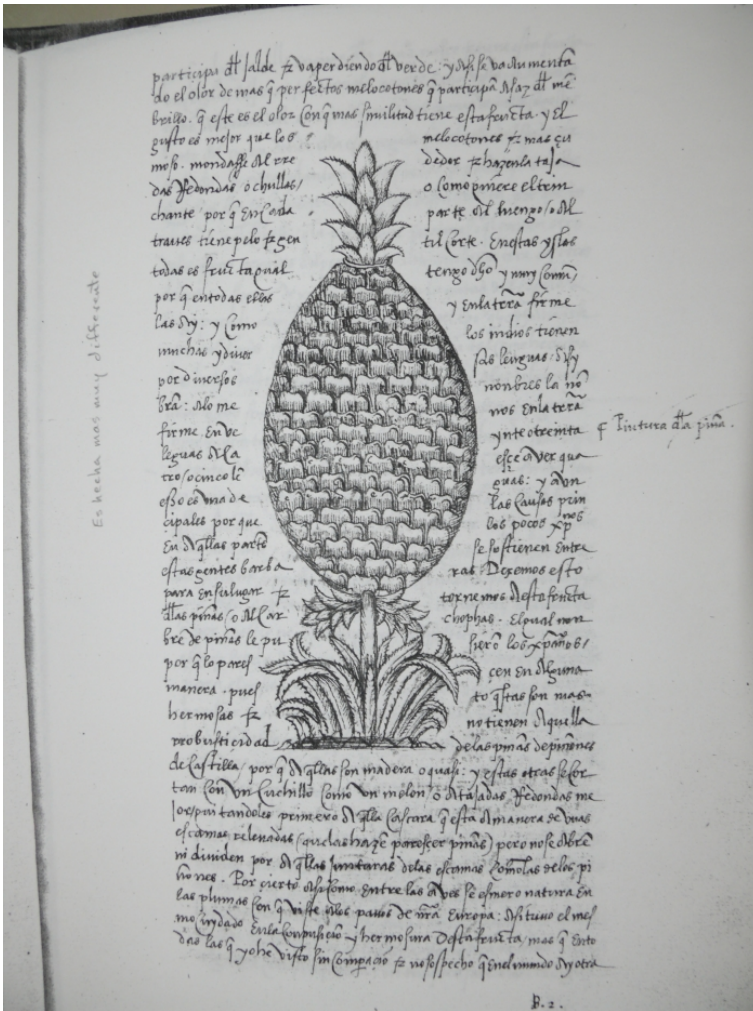 participa dl Jalde & va perdiendo dl verde: y Assi se va Aumenta
do el olor de mas q perfectos melocotones q participā Asaz dl mē
brillo. q este es el olor con q mas similitud tiene esta fructa. y El
gusto es mejor que los melocotones & mas çu
moso. mondasse Al rre dedor & hazenla taja
das Redondas o chullas/ o Como quiere el trin
chante por q En Cada parte Al luengo/o Al
traves tiene pelo & gen til Corte. En estas yslas
todas es fructa qual tengo dho y muy Comū/
por q en todas ellas y en la trrā firme
las Ay: y Como los indios tienen
muchas y diver sas lenguas. Assy
por diversos nonbres la nō
brā: Alo me nos en la trrā
firme En ve ynte o treinta
leguas
tro/o cinco lē guas: y Aun
esso es una de las Causas prin
cipales por que los pocos xpnos
En Aqllas partes se sostienen Entre
estas gentes barba ras. Dexemos esto
para En su lugar & tornemos A esta fructa
dlas piñas/o Al Car chophas. El qual non
bre de piñas le pu siero los xpanos/
por q lo pares çen En Alguna
manera. pues to q estas son mas
hermosas & no tienen Aquella
rrobusticidad de las piñas de piñones
de Castilla/ por q Aqllas son madera o quasi: y estas otras se Cor
tan Con Un Cuchillo Como un melon/o A tajadas Redondas me
jor/quitandoles primero Aqlla Cascara q está A manera de unas
escamas rrelevadas (que las hazē paresçer piñas) pero no se Abrē
ni dividen por Aqllas Junturas de las escamas Como las de los pi
ñones. Por çierto Assi Como Entre las Aves se esmero natura En
las plumas con q viste A los pavos de nrā Europa: Asi tuvo el mesmo
cuydado En la Composiçiō y hermosura Desta fructa mas q En to
das las q yo he visto sin Comparaçiō & no sospecho q En el mundo Ay otra
Es hecha mas muy differente
Pintura dla piña.
B.2.